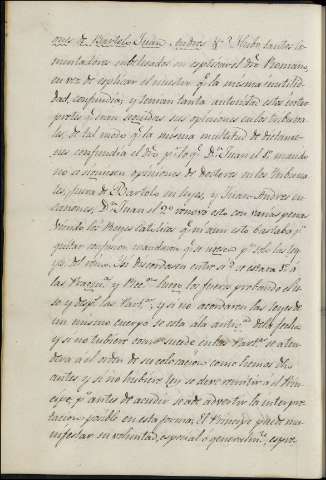 ones de Bartolo, Juan Andres &ª. Hubo tantos co-
mentadores embelesados en explicar el dro Romano,
en vez de esplicar el nuestro q.e la misma inutili-
dad, confundio, y tenian tanta autoridad estos inter-
pretes q.e eran seguidas sus opiniones en los tribuna-
les, de tal modo q.e la misma multitud de dictame-
nes confundia el dro p.r lo q.e D.n Juan el 1.o mando
no se siguiesen opiniones de doctores en los tribuna-
les, fuera de Bartolo en leyes, y Juan Andres en
canones. D.n Juan el 2.o renovó esto con varias penas
viendo los Reyes Catolicos q.e ni aun esto bastaba p.a
quitar confusion mandaron q.e se
yes del reino. Si discordasen entre si se estara 1.o á
las Pragm.s y Rec.on luego los fueros profundo el u-
so y desp.s las Part.s, y si no acordaren las leyes de
un mismo cuerpo se esta ala antig.d dela fecha
y si no tubiere como sucede en las Part.s se aten-
derá al el orden de su colocacion como hemos dho
antes y si no hubiere ley se debe recurrir á el Prin-
cipe, p.o antes de acudir se ade advertir la interpre-
tacion posible en esta forma. El Principe puede ma-
nifestar su voluntad, especial ó generalm.te, espre-